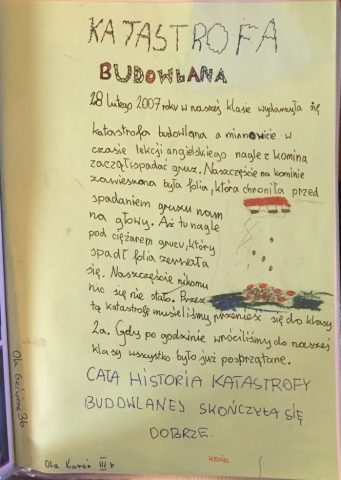 KATASTROFA
BUDOWLANA
28 lutego 2007 roku w naszej klasie wydarzyła się
katastrofa budowlana a mianowicie w
czasie lekcji angielskiego nagle z komina
zaczął spadać gruz. Naszczęście na kominie
zawieszona była folia, która chroniła przed
spadaniem gruzu nam
na głowy. Aż tu nagle
pod ciężarem gruzu, który
spadł folia zerwała
się. Naszczęście nikomu
nic się nie stało. Przez
tą katastrofę musieliśmy przenieść się do klasy
2a. Gdy po godzinie wróciliśmy do naszej
klasy wszystko było już posprzątane.
CAŁA HISTORIA KATASTROFY
BUDOWLANEJ SKOŃCZYŁA SIĘ
DOBRZE.
KONIEC
Ola III b
Ola 3b